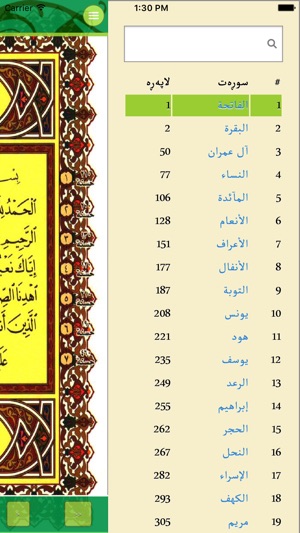 Carrier 1:30 PM
# سورەت لاپەڕە
1 الفاتحة 1
2 البقرة 2
3 آل عمران 50
4 النساء 77
5 المآئدة 106
6 الأنعام 128
7 الأعراف 151
8 الأنفال 177
9 التوبة 187
10 يونس 208
11 هود 221
12 يوسف 235
13 الرعد 249
14 إبراهيم 255
15 الحجر 262
16 النحل 267
17 الإسراء 282
18 الكهف 293
19 مريم 305
بِسْ
١ اَلْحَمْدُ لِلّٰهِ
٢ الرَّحِيمِ
٣ إِيَّاكَ نَعْبُ
٤ اهْدِنَا الصِّ
٥ الَّذِينَ أَن
٦ عَلَ
٧